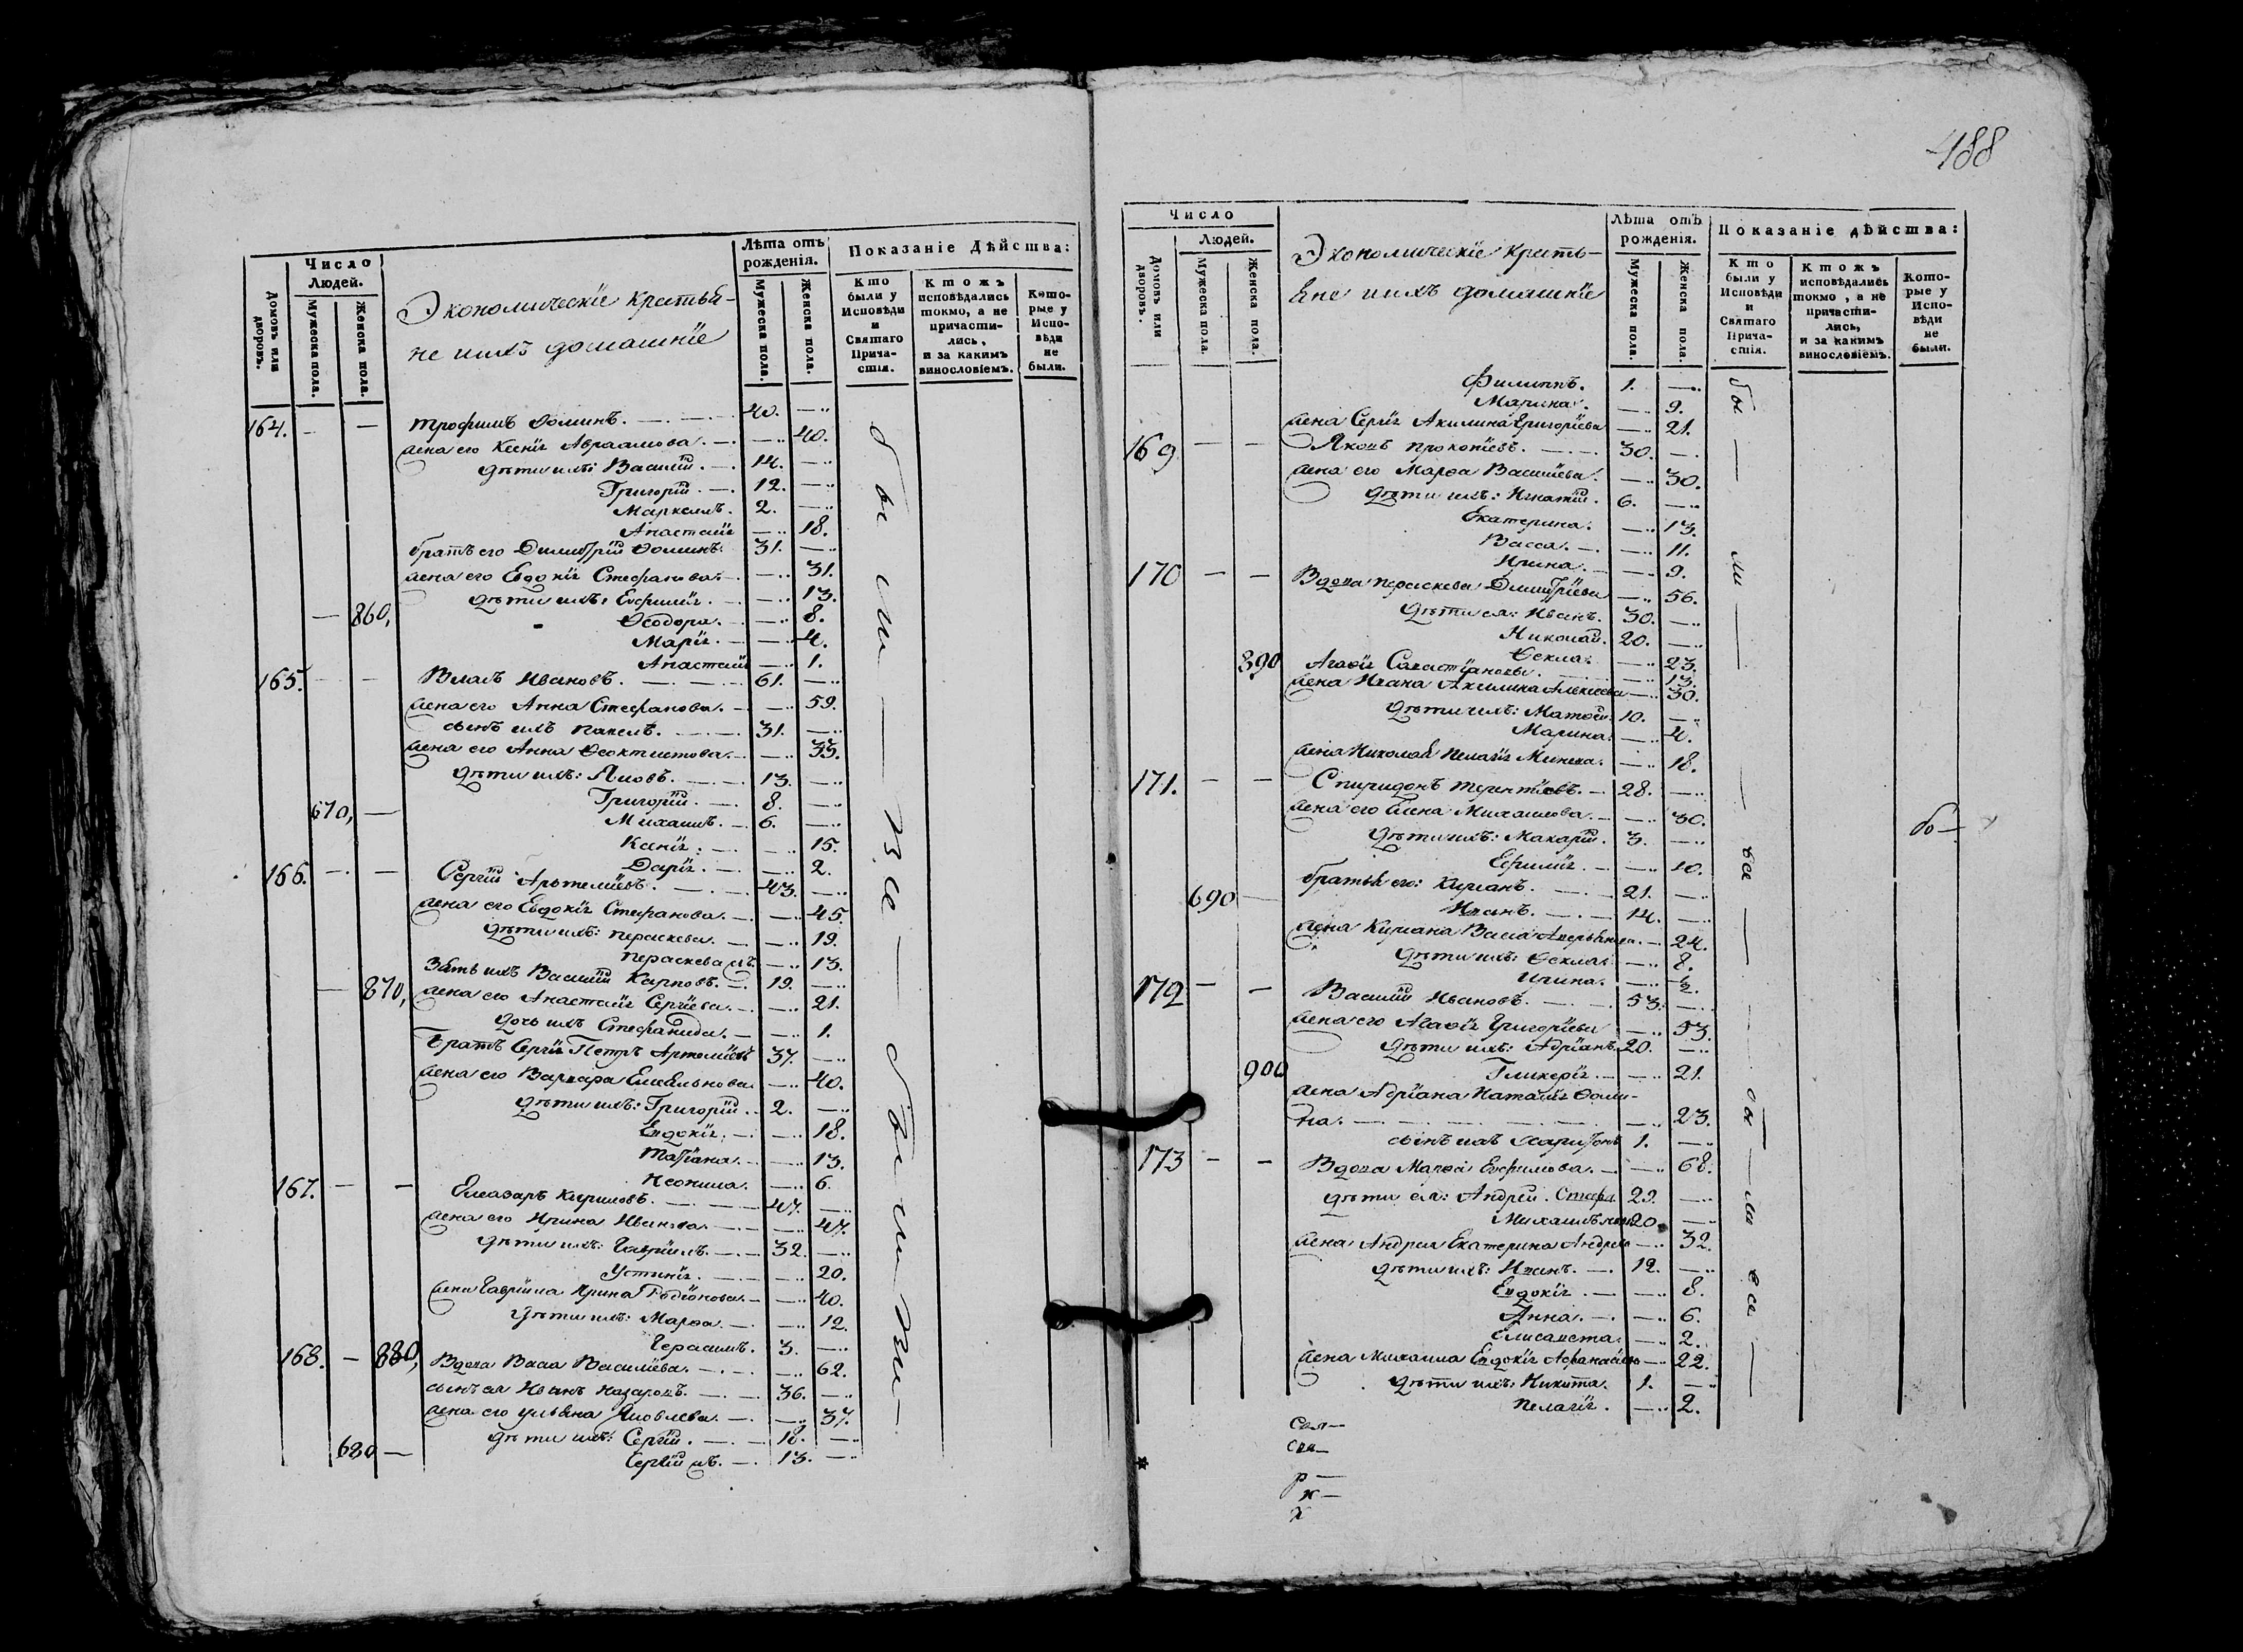 488
Число
Людей.
Домовъ или дворовъ.
Мужеска пола.
Женска пола.
Экономическіе крестья-
не и ихъ домашніе
Лѣта отъ рожденія.
Мужеска пола.
Женска пола.
Показаніе Дѣйства:
Кто были у Исповѣди и Святаго Прича-стія.
Ктожъ исповѣдались токмо, а не причасти-лись, и за какимъ винословіемъ.
Кото-рые у Испо-вѣди не были.
164. — — Трофимъ Ѳоминъ. — 40. —
жена его Ксенія Авраамова. — — 40.
дѣти ихъ: Василій. — 14. —
Григорій. — 12. —
Маркелъ. 2. —
Анастасія — 18.
братъ его Димитрій Ѳоминъ. 31. —
жена его Евдокія Стефанова. — — 31.
дѣти ихъ: Евфимія. — — 13.
— 860, Ѳеодора. — — 8.
Марія. — — 4.
Анастасія — 1.
165. — — Власъ Ивановъ. — 61. —
жена его Анна Стефанова. — — 59.
сынъ ихъ Павелъ. — 31. —
жена его Анна Ѳеоктистова. — — 33.
дѣти ихъ: Яковъ. — 13. —
670, — Григорій. — 8. —
Михаилъ. — 6. —
Ксенія. — — 15.
Дарія. — — 2.
166. — — Сергій Артеміевъ. — 43. —
жена его Евдокія Стефанова. — — 45.
дѣти ихъ: Параскева. — — 19.
Параскева мъ. — 13.
Зять ихъ Василій Карповъ. — 19. —
— 870, жена его Анастасія Сергіева. — — 21.
дочь ихъ Стефанида. — — 1.
Братъ Сергія Петръ Артеміевъ 37. —
жена его Варвара Емельянова — 40.
дѣти ихъ: Григорій. 2. —
Евдокія. — — 18.
Татіана. — — 13.
Неонила. — 6.
167. — — Елеазаръ Кириловъ. — 47. —
жена его Ирина Иванова. — — 47.
дѣти ихъ: Гавріилъ. — 32. —
Устинія. — — 20.
жена Гавріила Ирина Родіонова. — — 40.
дѣти ихъ: Марѳа. — — 12.
Герасимъ. 3. —
168. — 880, Вдова Васса Василіева. — — 62.
сынъ ея Иванъ Назаровъ. — 36. —
жена его Ульяна Яковлева. — — 37.
дѣти ихъ: Сергій. — 18. —
680 — Сергій мъ. — 13. —
были — все — были все —
Число
Людей.
Домовъ или дворовъ.
Мужеска пола.
Женска пола.
Экономическіе кресть-
яне и ихъ домашніе
Лѣта отъ рожденія.
Мужеска пола.
Женска пола.
Показаніе дѣйства:
Кто были у Исповѣди и Святаго Прича-стія.
Ктожъ исповѣдались токмо, а не причасти-лись, и за какимъ винословіемъ.
Кото-рые у Испо-вѣди не были.
Филиппъ. 1. —
Марина. — 9.
жена Сергія Акилина Григоріева — 21.
169 — — Яковъ Прокопіевъ. — 30. —
жена его Марѳа Василіева. — 30.
дѣти ихъ: Игнатій. 6. —
Екатерина. — 13.
Васса. — — 11.
Ирина. — — 9.
170 — — Вдова Параскева Димитріева — 56.
дѣти ея: Иванъ. 30. —
Николай. 20. —
Ѳекла. — 23.
890 Агаѳія Савастіановы. — 13.
жена Ивана Акилина Алексеева — 30.
дѣти ихъ: Матѳей. 10. —
Марина. — 4.
жена Николая Пелагія Минеева. — 18.
171. — — Спиридонъ Терентіевъ. — 28. —
жена его Елена Михаилова. — — 30.
дѣти ихъ: Макарій. 3. —
Евфимія. — — 10.
690 — братья его: Кирианъ. — 21. —
Иванъ. — 14. —
жена Кириана Васса Аверьянова. — 24.
дѣти ихъ: Ѳекла. — 8.
Ирина. — 2.
172 — — Василій Ивановъ. — 53. —
жена его Агаѳія Григоріева — 53.
дѣти ихъ: Адріанъ. 20. —
900 Гликерія. — — 21.
жена Адріана Наталія Ѳоми-
на. — — 23.
сынъ ихъ Харитонъ 1. —
173 — — Вдова Марѳа Евфимова. — — 68.
дѣти ея: Андрей. Стефа 29. —
Михаилъ новы 20. —
жена Андрея Екатерина Андреева — 32.
дѣти ихъ: Иванъ. — 12. —
Евдокія. — — 8.
Анна. — — 6.
Елисавета. — 2.
жена Михаила Евдокія Аѳанасіева — 22.
дѣти ихъ: Никита. 1. —
Пелагія. — 2.
бы — ли — все — бы — ли все —